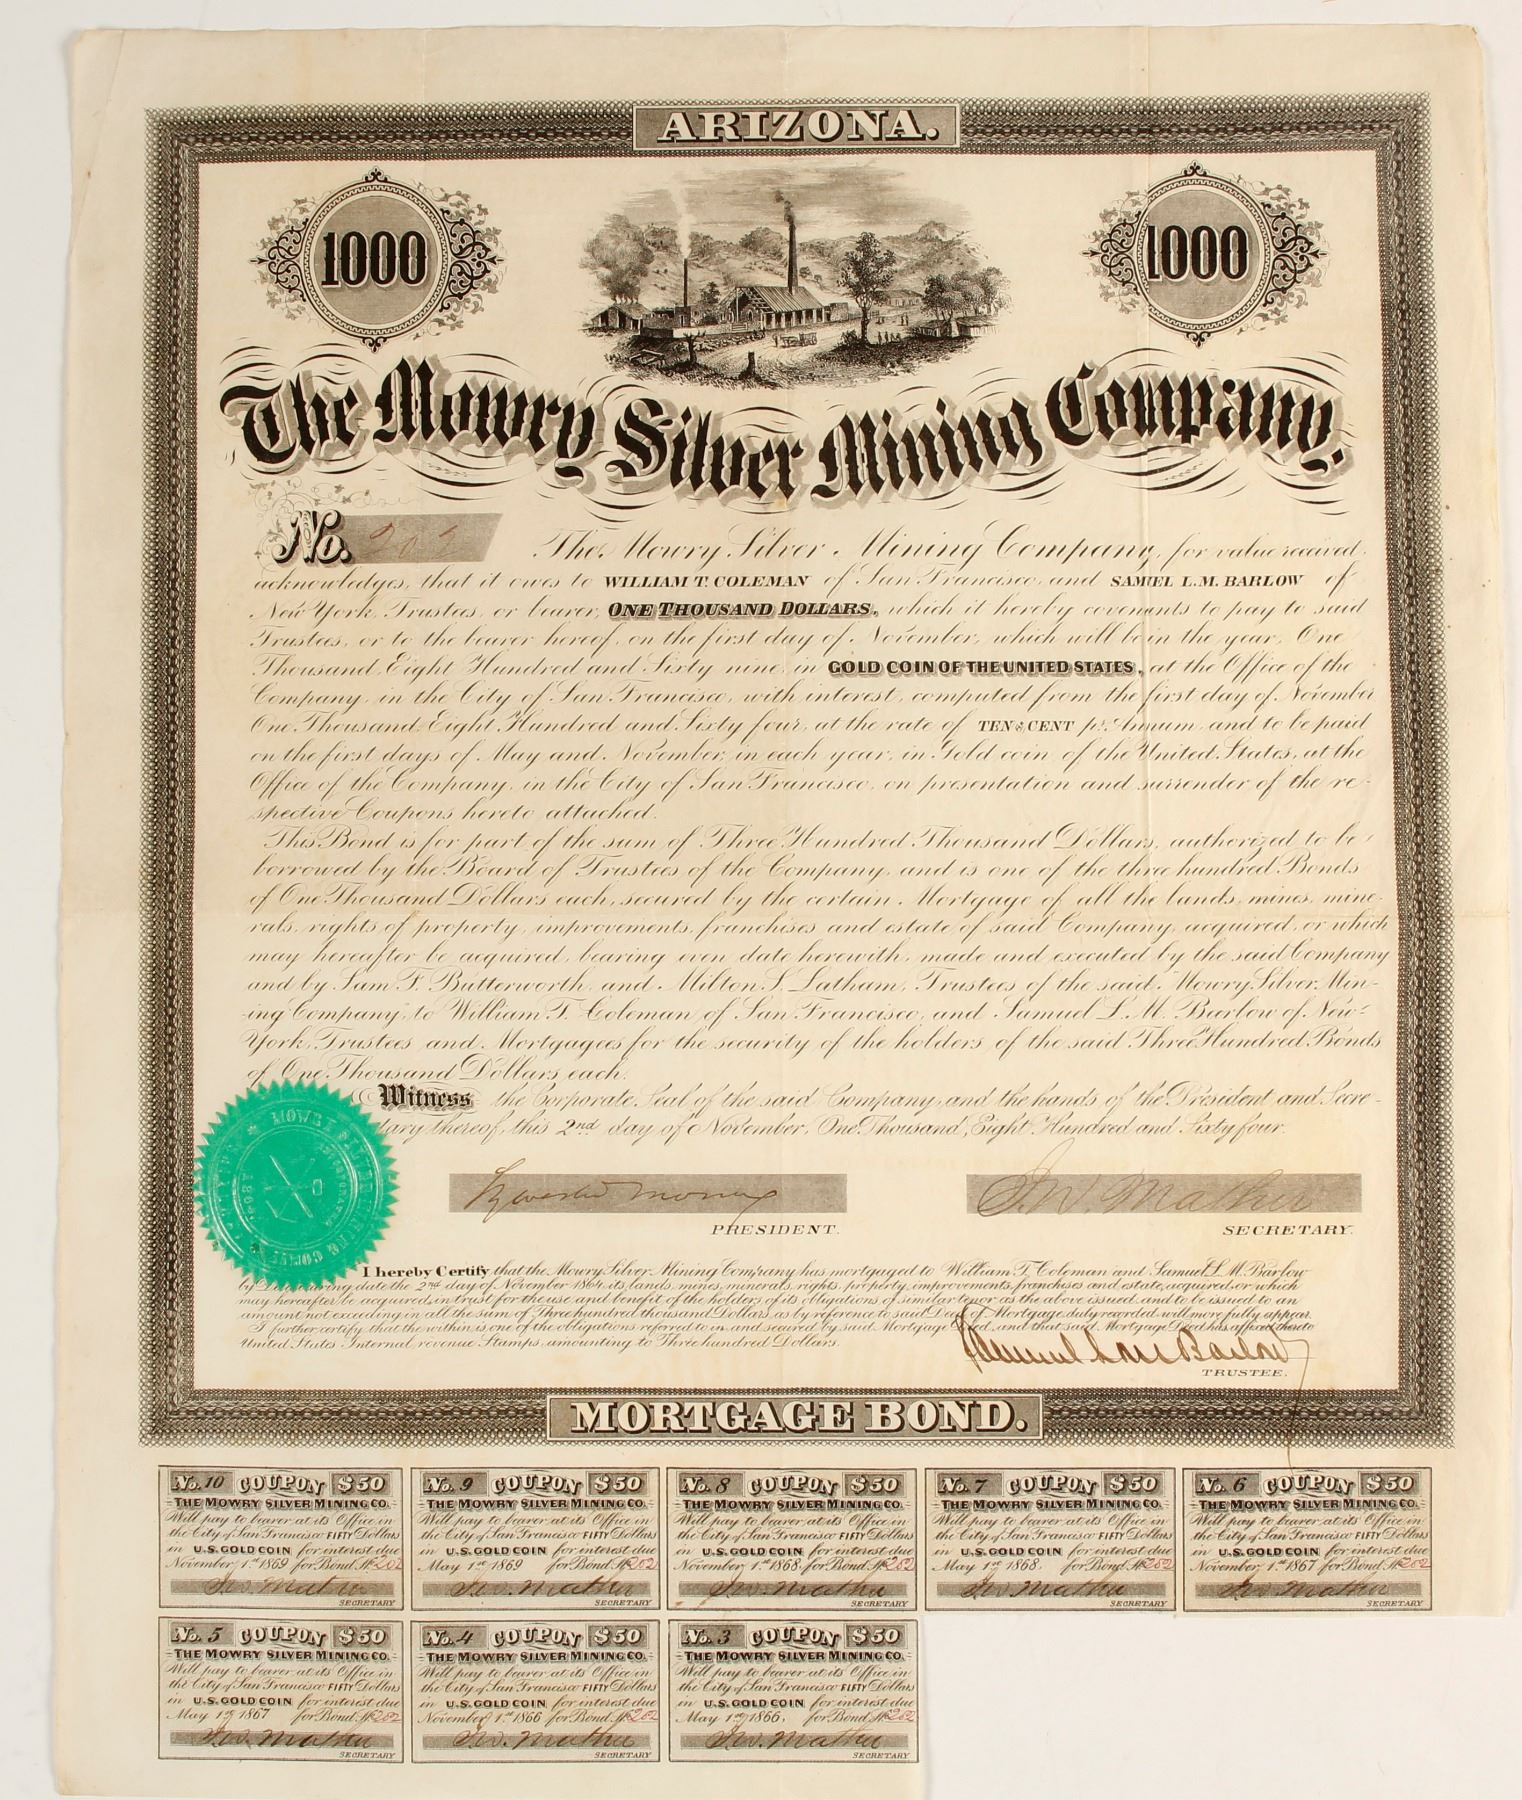 ARIZONA.
1000
1000
The Mowry Silver Mining Company.
No. 202
The Mowry Silver Mining Company, for value received,
acknowledges, that it owes to WILLIAM T. COLEMAN of San Francisco, and SAMUEL L.M. BARLOW of
New York, Trustees, or bearer, ONE THOUSAND DOLLARS, which it hereby covenants to pay to said
Trustees, or to the bearer hereof, on the first day of November, which will be in the year, One
Thousand Eight Hundred and Sixty nine, in GOLD COIN OF THE UNITED STATES, at the Office of the
Company, in the City of San Francisco, with interest, computed from the first day of November
One Thousand Eight Hundred and Sixty four, at the rate of TEN CENT pr. Annum, and to be paid
on the first days of May and November, in each year, in Gold coin of the United States, at the
Office of the Company, in the City of San Francisco, on presentation and surrender of the re-
spective Coupons hereto attached.
This Bond is for part of the sum of Three Hundred Thousand Dollars, authorized to be
borrowed by the Board of Trustees of the Company, and is one of the three hundred Bonds
of One Thousand Dollars each, secured by the certain Mortgage of all the lands, mines, mine-
rals, rights of property, improvements, franchises and estate of said Company, acquired, or which
may hereafter be acquired, bearing even date herewith, made and executed by the said Company
and by Sam F. Butterworth, and Milton S. Latham, Trustees of the said, Mowry Silver Min-
-ing Company, to William T. Coleman of San Francisco, and Samuel L. M. Barlow of New-
York, Trustees and Mortgagees for the security of the holders of the said Three Hundred Bonds
of One Thousand Dollars, each.
Witness the Corporate Seal of the said Company, and the hands of the President and Secre-
tary thereof, this 2nd day of November, One Thousand, Eight Hundred and Sixty four.
Sylvester Mowry
PRESIDENT.
Jno. Mather
SECRETARY.
I hereby Certify that the Mowry Silver Mining Company has mortgaged to William T. Coleman and Samuel L. M. Barlow
by Deed bearing date the 2nd day of November 1864, its, lands, mines, minerals, rights, property, improvements, franchises and estate, acquired, or which
may hereafter be acquired, in trust for the use and benefit of the holders of its obligations of similar tenor as the above issued, and to be issued to an
amount not exceeding in all the sum of Three hundred thousand Dollars as by reference to said Deed of Mortgage duly recorded will more fully appear.
I further certify that the within is one of the obligations referred to in and secured by said Mortgage Deed, and that said Mortgage Deed has affixed thereto
United States Internal revenue Stamps, amounting to Three hundred Dollars.
Samuel L M Barlow
TRUSTEE.
MORTGAGE BOND.
No. 10 COUPON $50
THE MOWRY SILVER MINING CO.
Will pay to bearer at its Office in
the City of San Francisco FIFTY Dollars
in U.S. GOLD COIN for interest due
November 1st 1869 for Bond No 202
Jno. Mather
SECRETARY
No. 9 COUPON $50
THE MOWRY SILVER MINING CO.
Will pay to bearer at its Office in
the City of San Francisco FIFTY Dollars
in U.S. GOLD COIN for interest due
May 1st 1869 for Bond No 202
Jno. Mather
SECRETARY
No. 8 COUPON $50
THE MOWRY SILVER MINING CO.
Will pay to bearer at its Office in
the City of San Francisco FIFTY Dollars
in U.S. GOLD COIN for interest due
November 1st 1868 for Bond No 202
Jno. Mather
SECRETARY
No. 7 COUPON $50
THE MOWRY SILVER MINING CO.
Will pay to bearer at its Office in
the City of San Francisco FIFTY Dollars
in U.S. GOLD COIN for interest due
May 1st 1868 for Bond No 202
Jno. Mather
SECRETARY
No. 6 COUPON $50
THE MOWRY SILVER MINING CO.
Will pay to bearer at its Office in
the City of San Francisco FIFTY Dollars
in U.S. GOLD COIN for interest due
November 1st 1867 for Bond No 202
Jno. Mather
SECRETARY
No. 5 COUPON $50
THE MOWRY SILVER MINING CO.
Will pay to bearer at its Office in
the City of San Francisco FIFTY Dollars
in U.S. GOLD COIN for interest due
May 1st 1867 for Bond No 202
Jno. Mather
SECRETARY
No. 4 COUPON $50
THE MOWRY SILVER MINING CO.
Will pay to bearer at its Office in
the City of San Francisco FIFTY Dollars
in U.S. GOLD COIN for interest due
November 1st 1866 for Bond No 202
Jno. Mather
SECRETARY
No. 3 COUPON $50
THE MOWRY SILVER MINING CO.
Will pay to bearer at its Office in
the City of San Francisco FIFTY Dollars
in U.S. GOLD COIN for interest due
May 1st 1866, for Bond No 202
Jno. Mather
SECRETARY